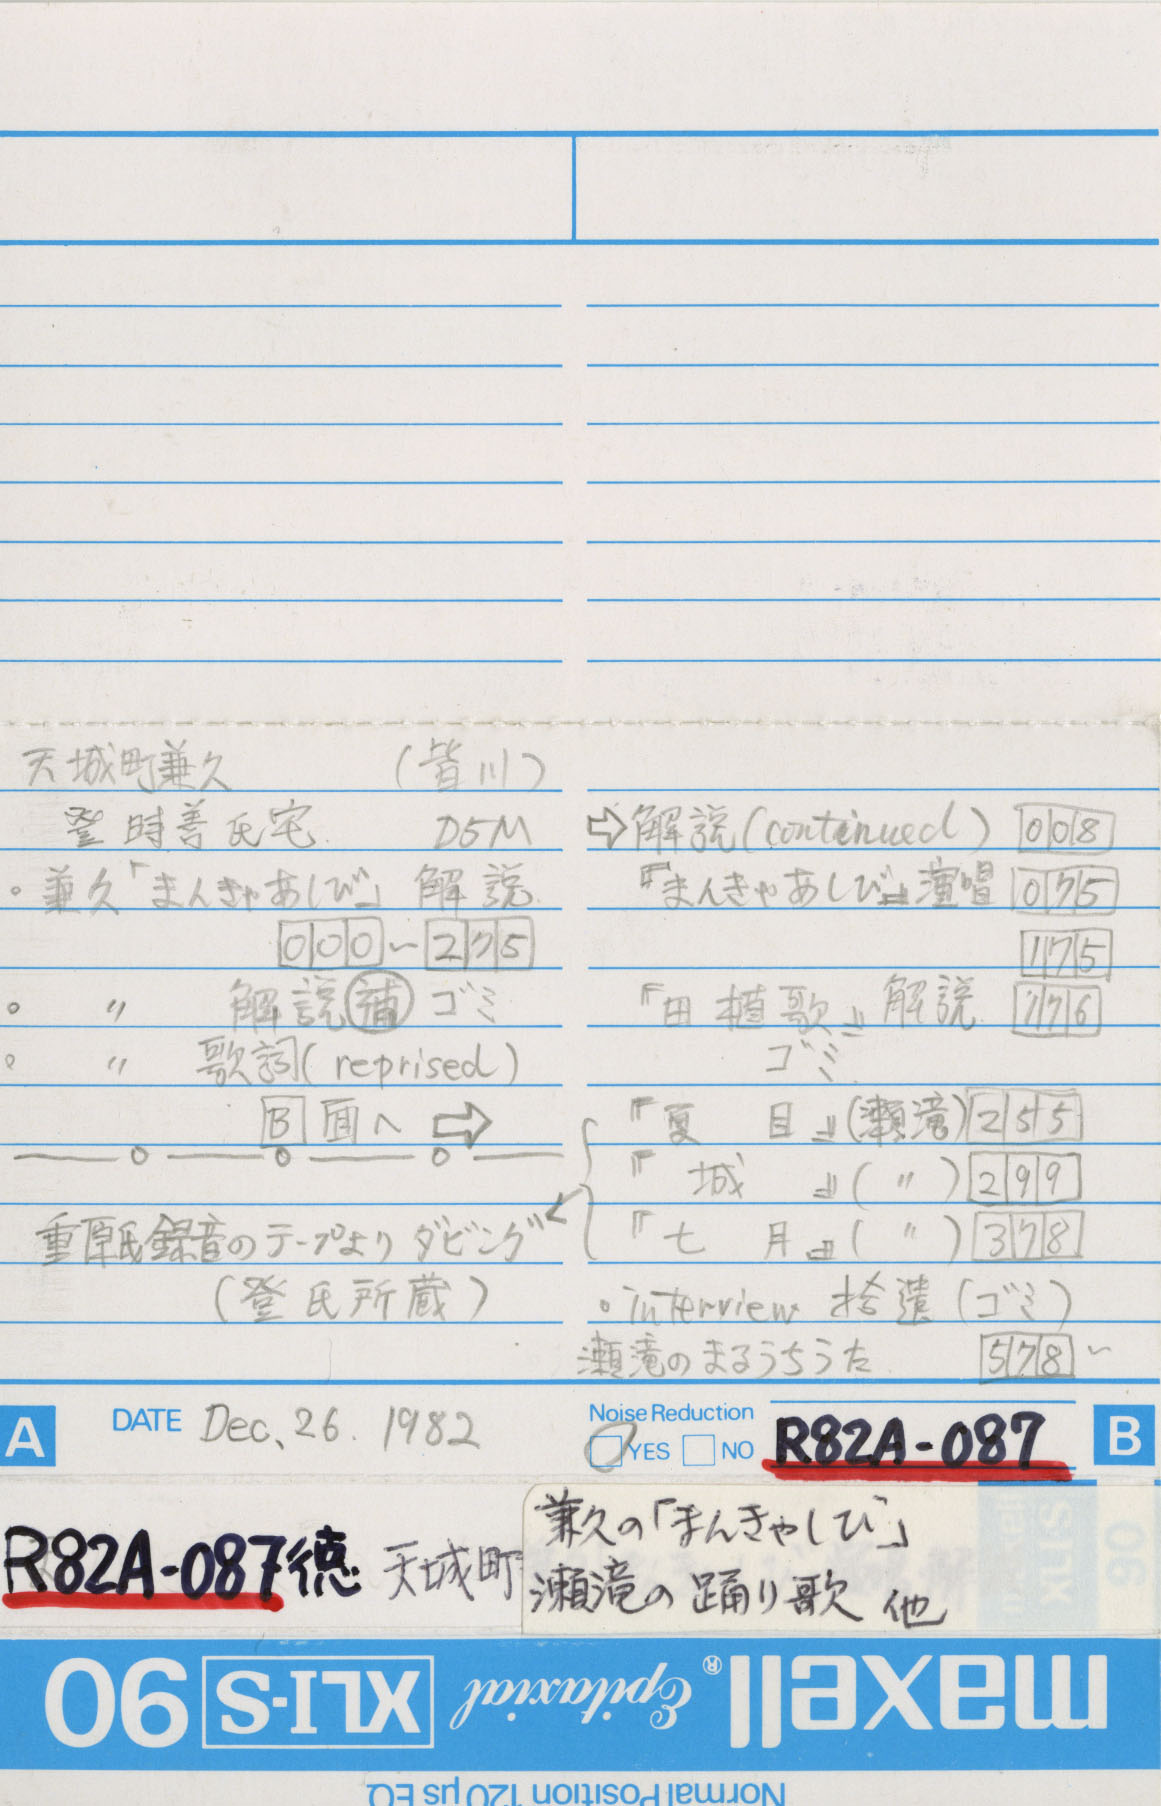 天城町兼久 (皆川)
登時善氏宅. D5M
。兼久「まんきゃあしび」解説
000〜275
。 〃 解説 補 ゴミ
。 〃 歌詞(reprised)
B面へ ⇨
重原氏録音のテープより ダビング
(登氏所蔵)
⇨解説(continued) 008
『まんきゃあしび』演唱 075
175
『田植歌』解説 176
ゴミ
『夏 目』(瀬滝) 255
『 城 』( 〃 ) 299
『七 月』( 〃 ) 378
。interview 拾遺(ゴミ)
瀬滝のまるうちうた 578〜
A DATE Dec. 26. 1982
Noise Reduction
YES NO R82A-087 B
R82A-087 徳 天城町
兼久の「まんきゃしび」
瀬滝の踊り歌 他
maxell® Epitaxial XLI-S 90
Normal Position 120μs EQ